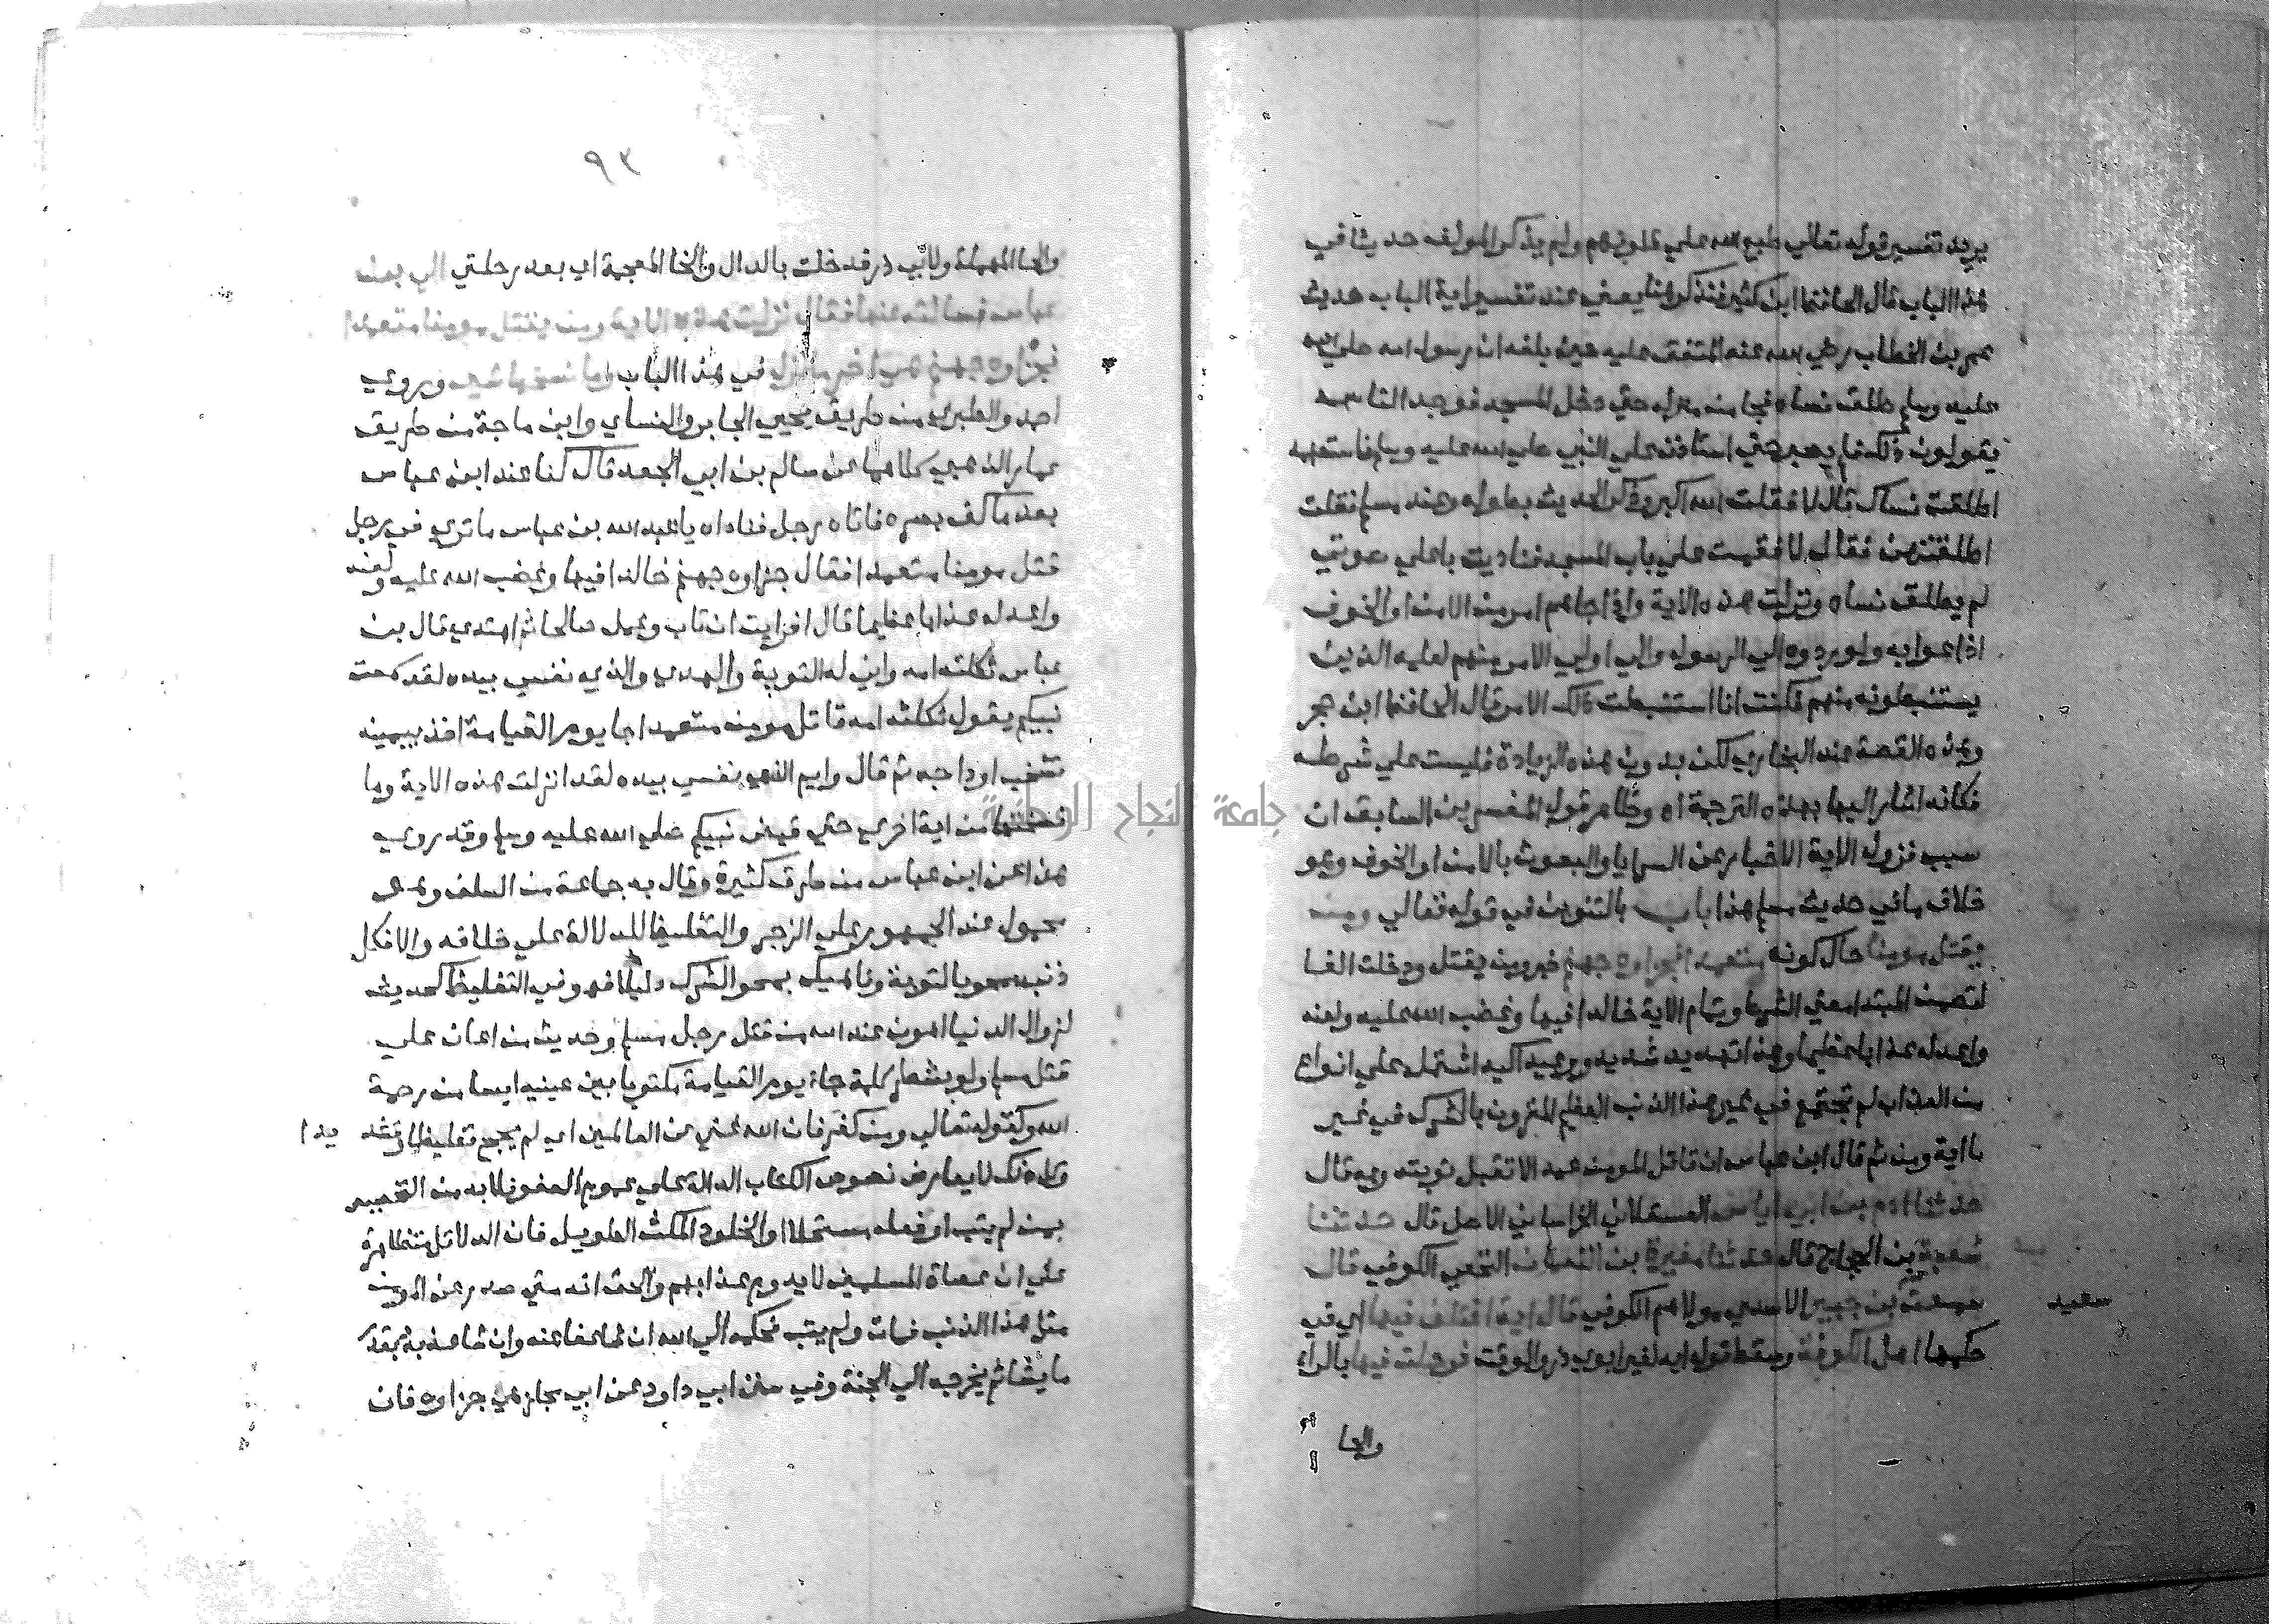 يريد تفسير قوله تعالي طبع الله علي قلوبهم ولم يذكر المولف حديثا في
هذا الباب قال الحافظ ابن كثير فنذكر هنا يعني عند تفسير اية الباب حديث
عمر بن الخطاب رضي الله عنه المتفق عليه حين بلغه ان رسول الله صلي الله
عليه وسلم طلق نساه فجا من منزله حتي دخل المسجد فوجد الناس
يقولون ذلك فلم يصبر حتي استاذن علي النبي صلي الله عليه وسلم فاستفهمه
اطلقت نساك قال لا فقلت الله اكبر وذكر الحديث بطوله وعند مسلم فقلت
اطلقتهن فقال لا فقمت علي باب المسجد فناديت باعلي صوتي
لم يطلق نساه ونزلت هذه الاية واذا جاهم امر من الامن او الخوف
اذاعوا به ولو ردوه الي الرسول والي اولي الامر منهم لعلمه الذين
يستنبطونه منهم فكنت انا استنبطت ذلك الامر قال الحافظ ابن حجر
وهذه القصة عند البخاري لكن بدون هذه الزيادة فليست علي شرطه
فكانه اشار اليها بهذه الترجمة اه وظاهر قول المفسرين السابق ان
سبب نزول الاية الاخبار عن السرايا والبعوث بالامن او الخوف وهو
خلاف ما في حديث مسلم هذا باب بالتنوين في قوله تعالي ومن
يقتل مومنا حال كونه متعمدا فجزاوه جهنم خبر ومن يقتل ودخلت الفا
لتضمن المبتدا معني الشرط وتمام الاية خالدا فيها وغضب الله عليه ولعنه
واعد له عذابا عظيما وهذا تهديد شديد ووعيد اكيد اشتمل علي انواع
من العذاب لم تجتمع في غير هذا الذنب العظيم المقرون بالشرك في غير
ما اية ومن ثم قال ابن عباس ان قاتل المومن عمدا لا تقبل توبته وبه قال
حدثنا ادم بن ابي اياس العسقلاني الخراساني الاصل قال حدثنا
شعبة بن الحجاج قال حدثنا مغيرة بن النعمان النخعي الكوفي قال
سمعت بن جبير الاسدي مولاهم الكوفي قال اية اختلف فيها اي في
سعيد
حكمها اهل الكوفة وسقط قوله اية لغير ابوي ذر والوقت فرحلت فيها بالرا
والحا
٩٣
والحا المهملة ولابي ذر فدخلت بالدال والخا المعجمة اي بعد رحلتي الي بن
عباس فسالته عنها فقال نزلت هذه الاية ومن يقتل مومنا متعمدا
فجزاوه جهنم هي اخر ما نزل في هذا الباب وما نسخها شي وروي
احمد والطبري من طريق يحيي الجابر والنساي وابن ماجة من طريق
عمار الذهبي كلاهما عن سالم بن ابي الجعد قال كنا عند ابن عباس
بعد ما كف بصره فاتاه رجل فناداه يا عبد الله بن عباس ما تري في رجل
قتل مومنا متعمدا فقال جزاوه جهنم خالدا فيها وغضب الله عليه ولعنه
واعد له عذابا عظيما قال افرايت ان تاب وعمل صالحا ثم اهتدي قال بن
عباس ثكلته امه واني له التوبة والهدي والذي نفسي بيده لقد سمعت
نبيكم يقول ثكلته امه قاتل مومن متعمدا جا يوم القيامة اخذ بيمينه
تشخب اوداجه ثم قال وايم الذي نفسي بيده لقد انزلت هذه الاية وما
نسختها من اية اخري حتي قبض نبيكم صلي الله عليه وسلم وقد روي
هذا عن ابن عباس من طرق كثيرة وقال به جماعة من السلف وهو
محمول عند الجمهور علي الزجر والتغليظ للدلالة علي خلافه والا فكل
ذنب ممحو بالتوبة وناهيك بمحو الشرك دليلا فهو في التغليظ كحديث
لزوال الدنيا اهون عند الله من قتل رجل مسلم وحديث من اعان علي
قتل مسلم ولو بشطر كلمة جاء يوم القيامة مكتوبا بين عينيه ايسا من رحمة
الله وكقوله تعالي ومن كفر فان الله غني عن العالمين اي لم يحج تغليظا وتشد يدا
وكل ذلك لا يعارض نصوص الكتاب الدالة علي عموم العفو فلا بد من التخصيص
بمن لم يتب او فعله مستحلا او الخلود المكث الطويل فان الدلائل متظاهرة
علي ان عصاة المسلمين لا يدوم عذابهم والحق انه متي صدر عن المومن
مثل هذا الذنب فمات ولم يتب فحكمه الي الله ان شا عفا عنه وان شا عذبه بقدر
ما يشا ثم يخرجه الي الجنة وفي سنن ابي داود عن ابي مجلز هي جزاوه فان
جامعة النجاح الوطنية